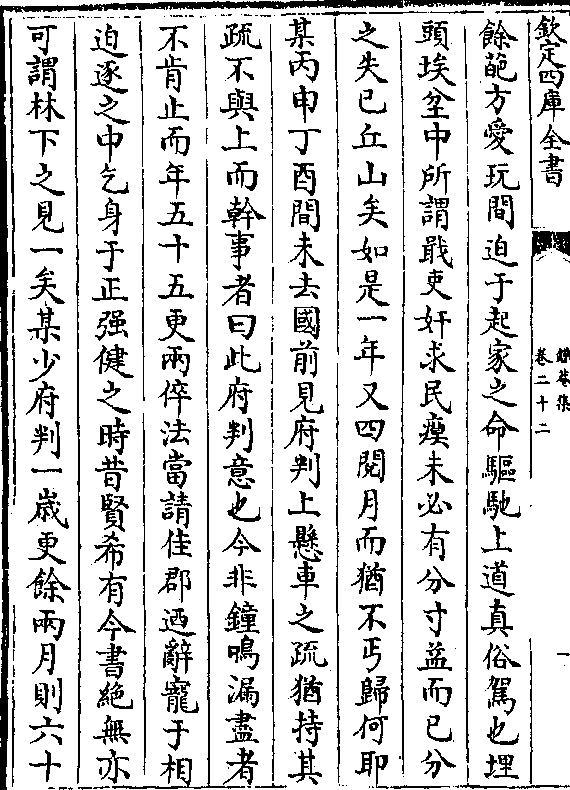 欽定四庫全書
鐵菴集
卷二十二
一
餘葩方愛玩間迫于起家之命驅馳上道真俗駕也埋
頭埃坌中所謂戢吏奸求民瘼未必有分寸益而已分
之失已丘山矣如是一年又四閱月而猶不丐歸何耶
某丙申丁酉間未去國前見府判上懸車之疏猶持其
疏不與上而幹事者曰此府判意也今非鐘鳴漏盡者
不肯止而年五十五更兩倅法當請佳郡迺辭寵于相
迫逐之中乞身于正强健之時昔賢希有今書絶無亦
可謂林下之見一矣某少府判一嵗更餘兩月則六十